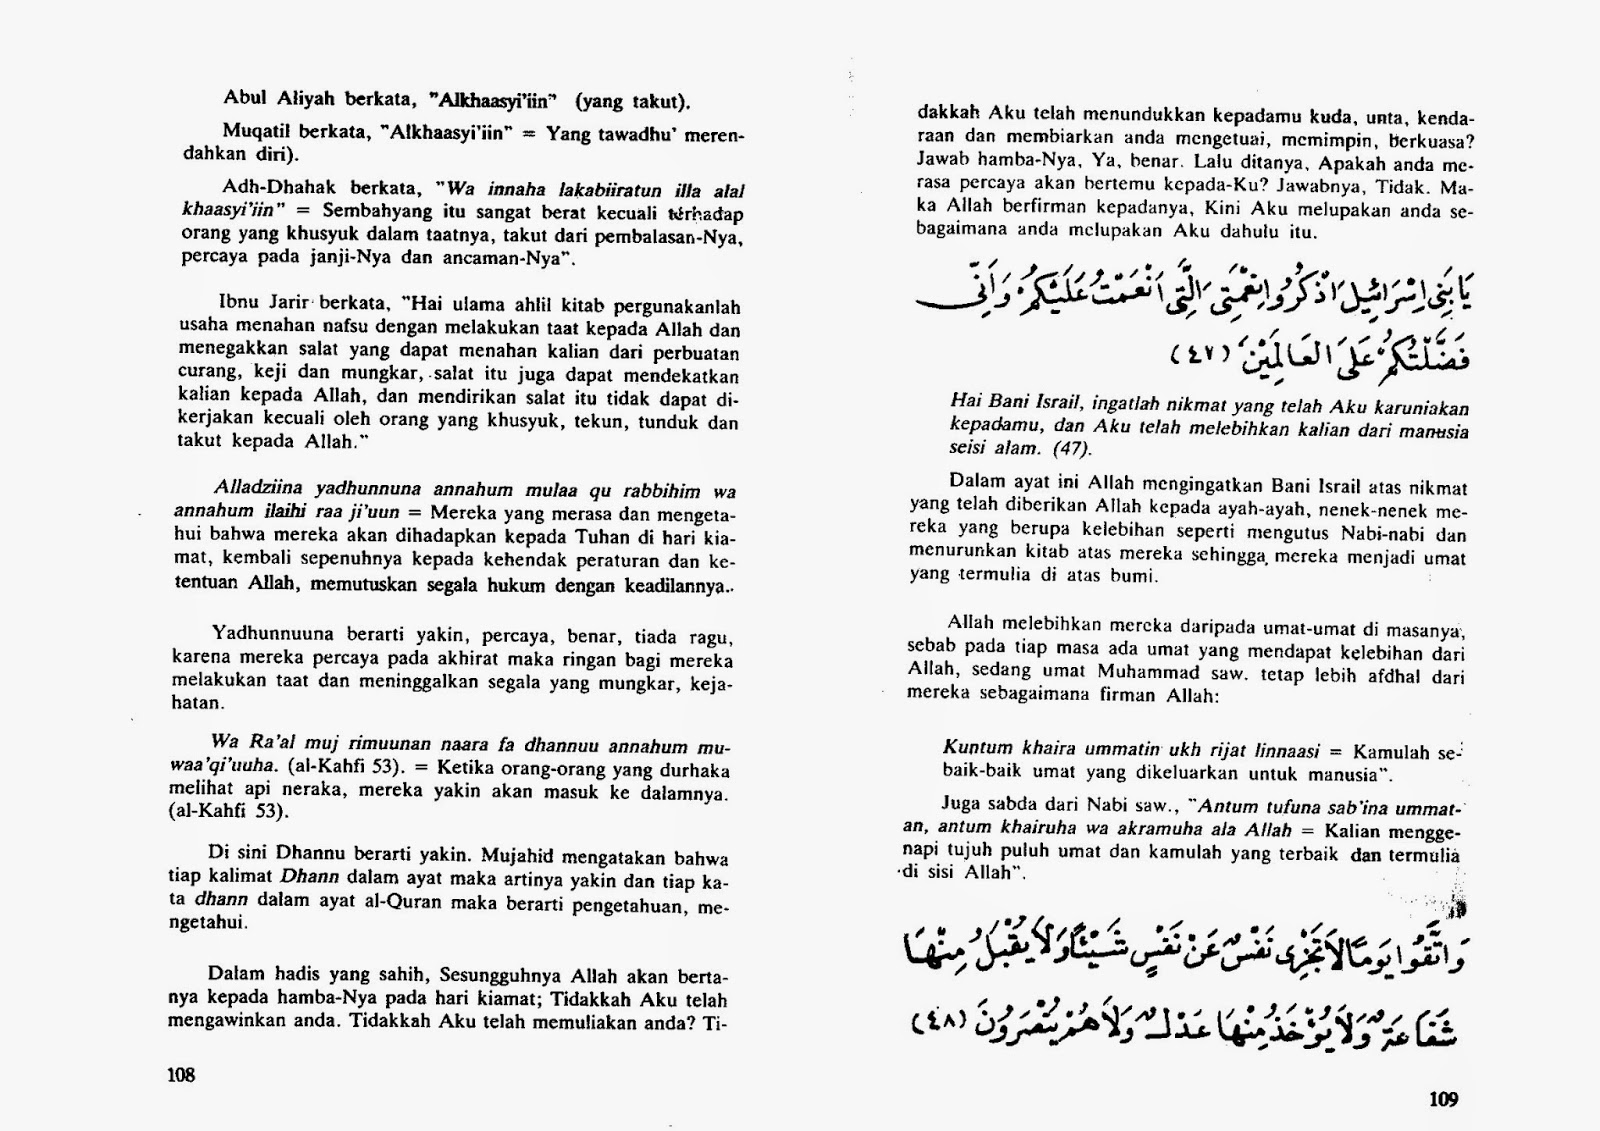 Abul Aliyah berkata, "Alkhaasyi'iin" (yang takut).
Muqatil berkata, "Alkhaasyi'iin" = Yang tawadhu' meren-
dahkan diri).
Adh-Dhahak berkata, "Wa innaha lakabiiratun illa alal
khaasyi'iin" = Sembahyang itu sangat berat kecuali terhadap
orang yang khusyuk dalam taatnya, takut dari pembalasan-Nya,
percaya pada janji-Nya dan ancaman-Nya".
Ibnu Jarir berkata, "Hai ulama ahlil kitab pergunakanlah
usaha menahan nafsu dengan melakukan taat kepada Allah dan
menegakkan salat yang dapat menahan kalian dari perbuatan
curang, keji dan mungkar, salat itu juga dapat mendekatkan
kalian kepada Allah, dan mendirikan salat itu tidak dapat di-
kerjakan kecuali oleh orang yang khusyuk, tekun, tunduk dan
takut kepada Allah."
Alladziina yadhunnuna annahum mulaa qu rabbihim wa
annahum ilaihi raa ji'uun = Mereka yang merasa dan mengeta-
hui bahwa mereka akan dihadapkan kepada Tuhan di hari kia-
mat, kembali sepenuhnya kepada kehendak peraturan dan ke-
tentuan Allah, memutuskan segala hukum dengan keadilannya..
Yadhunnuuna berarti yakin, percaya, benar, tiada ragu,
karena mereka percaya pada akhirat maka ringan bagi mereka
melakukan taat dan meninggalkan segala yang mungkar, keja-
hatan.
Wa Ra'al muj rimuunan naara fa dhannuu annahum mu-
waa'qi'uuha. (al-Kahfi 53). = Ketika orang-orang yang durhaka
melihat api neraka, mereka yakin akan masuk ke dalamnya.
(al-Kahfi 53).
Di sini Dhannu berarti yakin. Mujahid mengatakan bahwa
tiap kalimat Dhann dalam ayat maka artinya yakin dan tiap ka-
ta dhann dalam ayat al-Quran maka berarti pengetahuan, me-
ngetahui.
Dalam hadis yang sahih, Sesungguhnya Allah akan berta-
nya kepada hamba-Nya pada hari kiamat; Tidakkah Aku telah
mengawinkan anda. Tidakkah Aku telah memuliakan anda? Ti-
108
dakkah Aku telah menundukkan kepadamu kuda, unta, kenda-
raan dan membiarkan anda mengetuai, memimpin, berkuasa?
Jawab hamba-Nya, Ya, benar. Lalu ditanya, Apakah anda me-
rasa percaya akan bertemu kepada-Ku? Jawabnya, Tidak. Ma-
ka Allah berfirman kepadanya, Kini Aku melupakan anda se-
bagaimana anda melupakan Aku dahulu itu.
يَا بَنِي إِسْرَائِيلَ اذْكُرُوا نِعْمَتِيَ الَّتِي أَنْعَمْتُ عَلَيْكُمْ وَأَنِّي
فَضَّلْتُكُمْ عَلَى الْعَالَمِيْنَ (٤٧)
Hai Bani Israil, ingatlah nikmat yang telah Aku karuniakan
kepadamu, dan Aku telah melebihkan kalian dari manusia
seisi alam. (47).
Dalam ayat ini Allah mengingatkan Bani Israil atas nikmat
yang telah diberikan Allah kepada ayah-ayah, nenek-nenek me-
reka yang berupa kelebihan seperti mengutus Nabi-nabi dan
menurunkan kitab atas mereka sehingga mereka menjadi umat
yang termulia di atas bumi.
Allah melebihkan mereka daripada umat-umat di masanya,
sebab pada tiap masa ada umat yang mendapat kelebihan dari
Allah, sedang umat Muhammad saw. tetap lebih afdhal dari
mereka sebagaimana firman Allah:
Kuntum khaira ummatin ukh rijat linnaasi = Kamulah se-
baik-baik umat yang dikeluarkan untuk manusia".
Juga sabda dari Nabi saw., "Antum tufuna sab'ina ummat-
an, antum khairuha wa akramuha ala Allah = Kalian mengge-
napi tujuh puluh umat dan kamulah yang terbaik dan termulia
di sisi Allah".
وَاتَّقُوا يَوْمًا لَا تَجْزِي نَفْسٌ عَنْ نَفْسٍ شَيْئًا وَلَا يُقْبَلُ مِنْهَا
شَفَاعَةٌ وَلَا يُؤْخَذُ مِنْهَا عَدْلٌ وَلَا هُمْ يُنْصَرُونَ (٤٨)
109